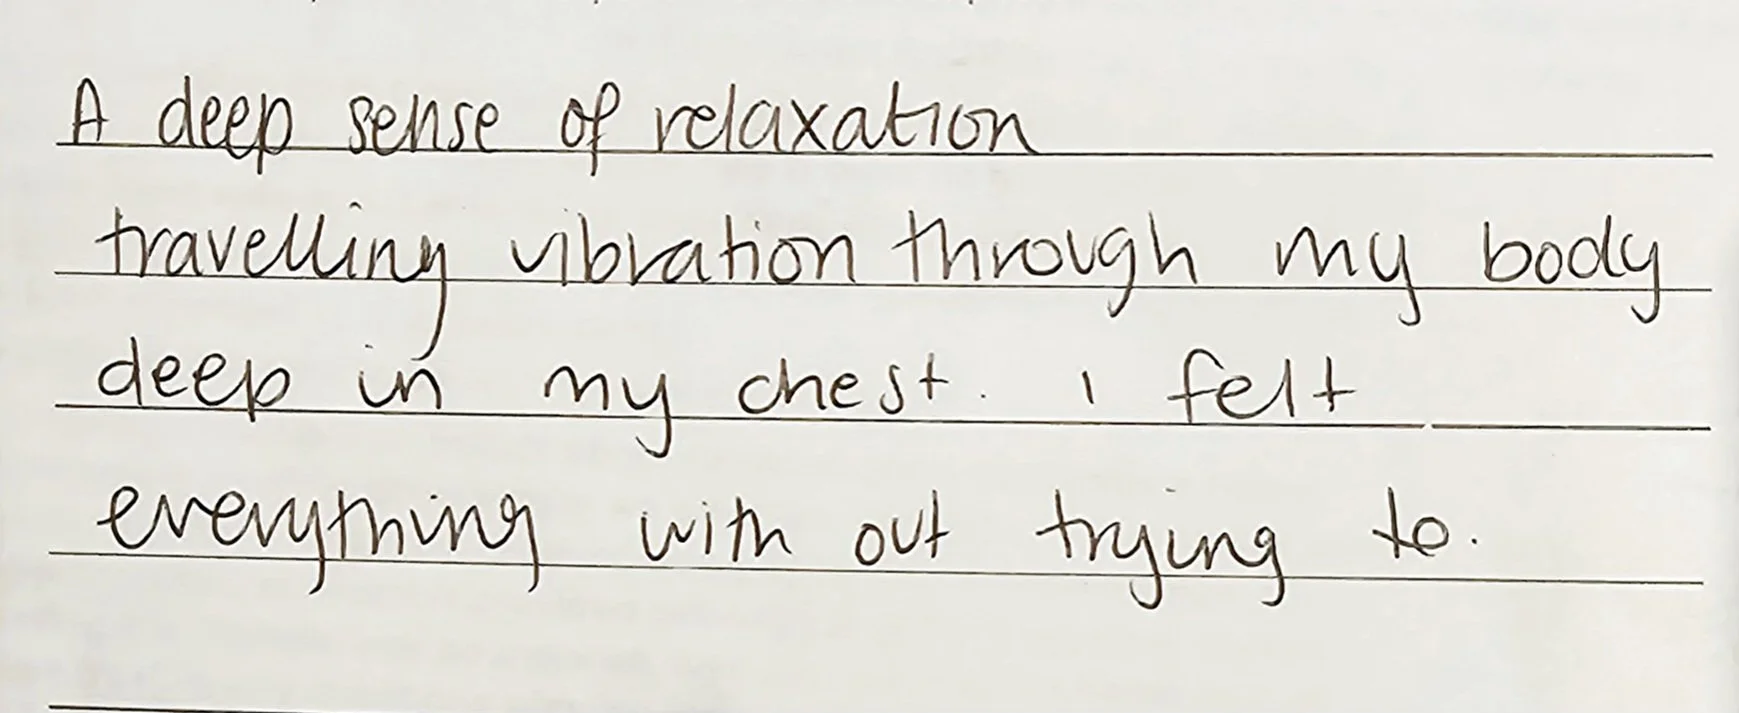 A deep sense of relaxation
travelling vibration through my body
deep in my chest. I felt
everything with out trying to.